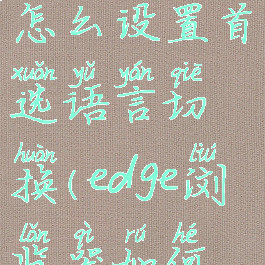 怎么设置首
xuǎn yǔ yán qiē
选语言切
huàn liú
换(edge浏
lǎn qì rú hé
览器如何